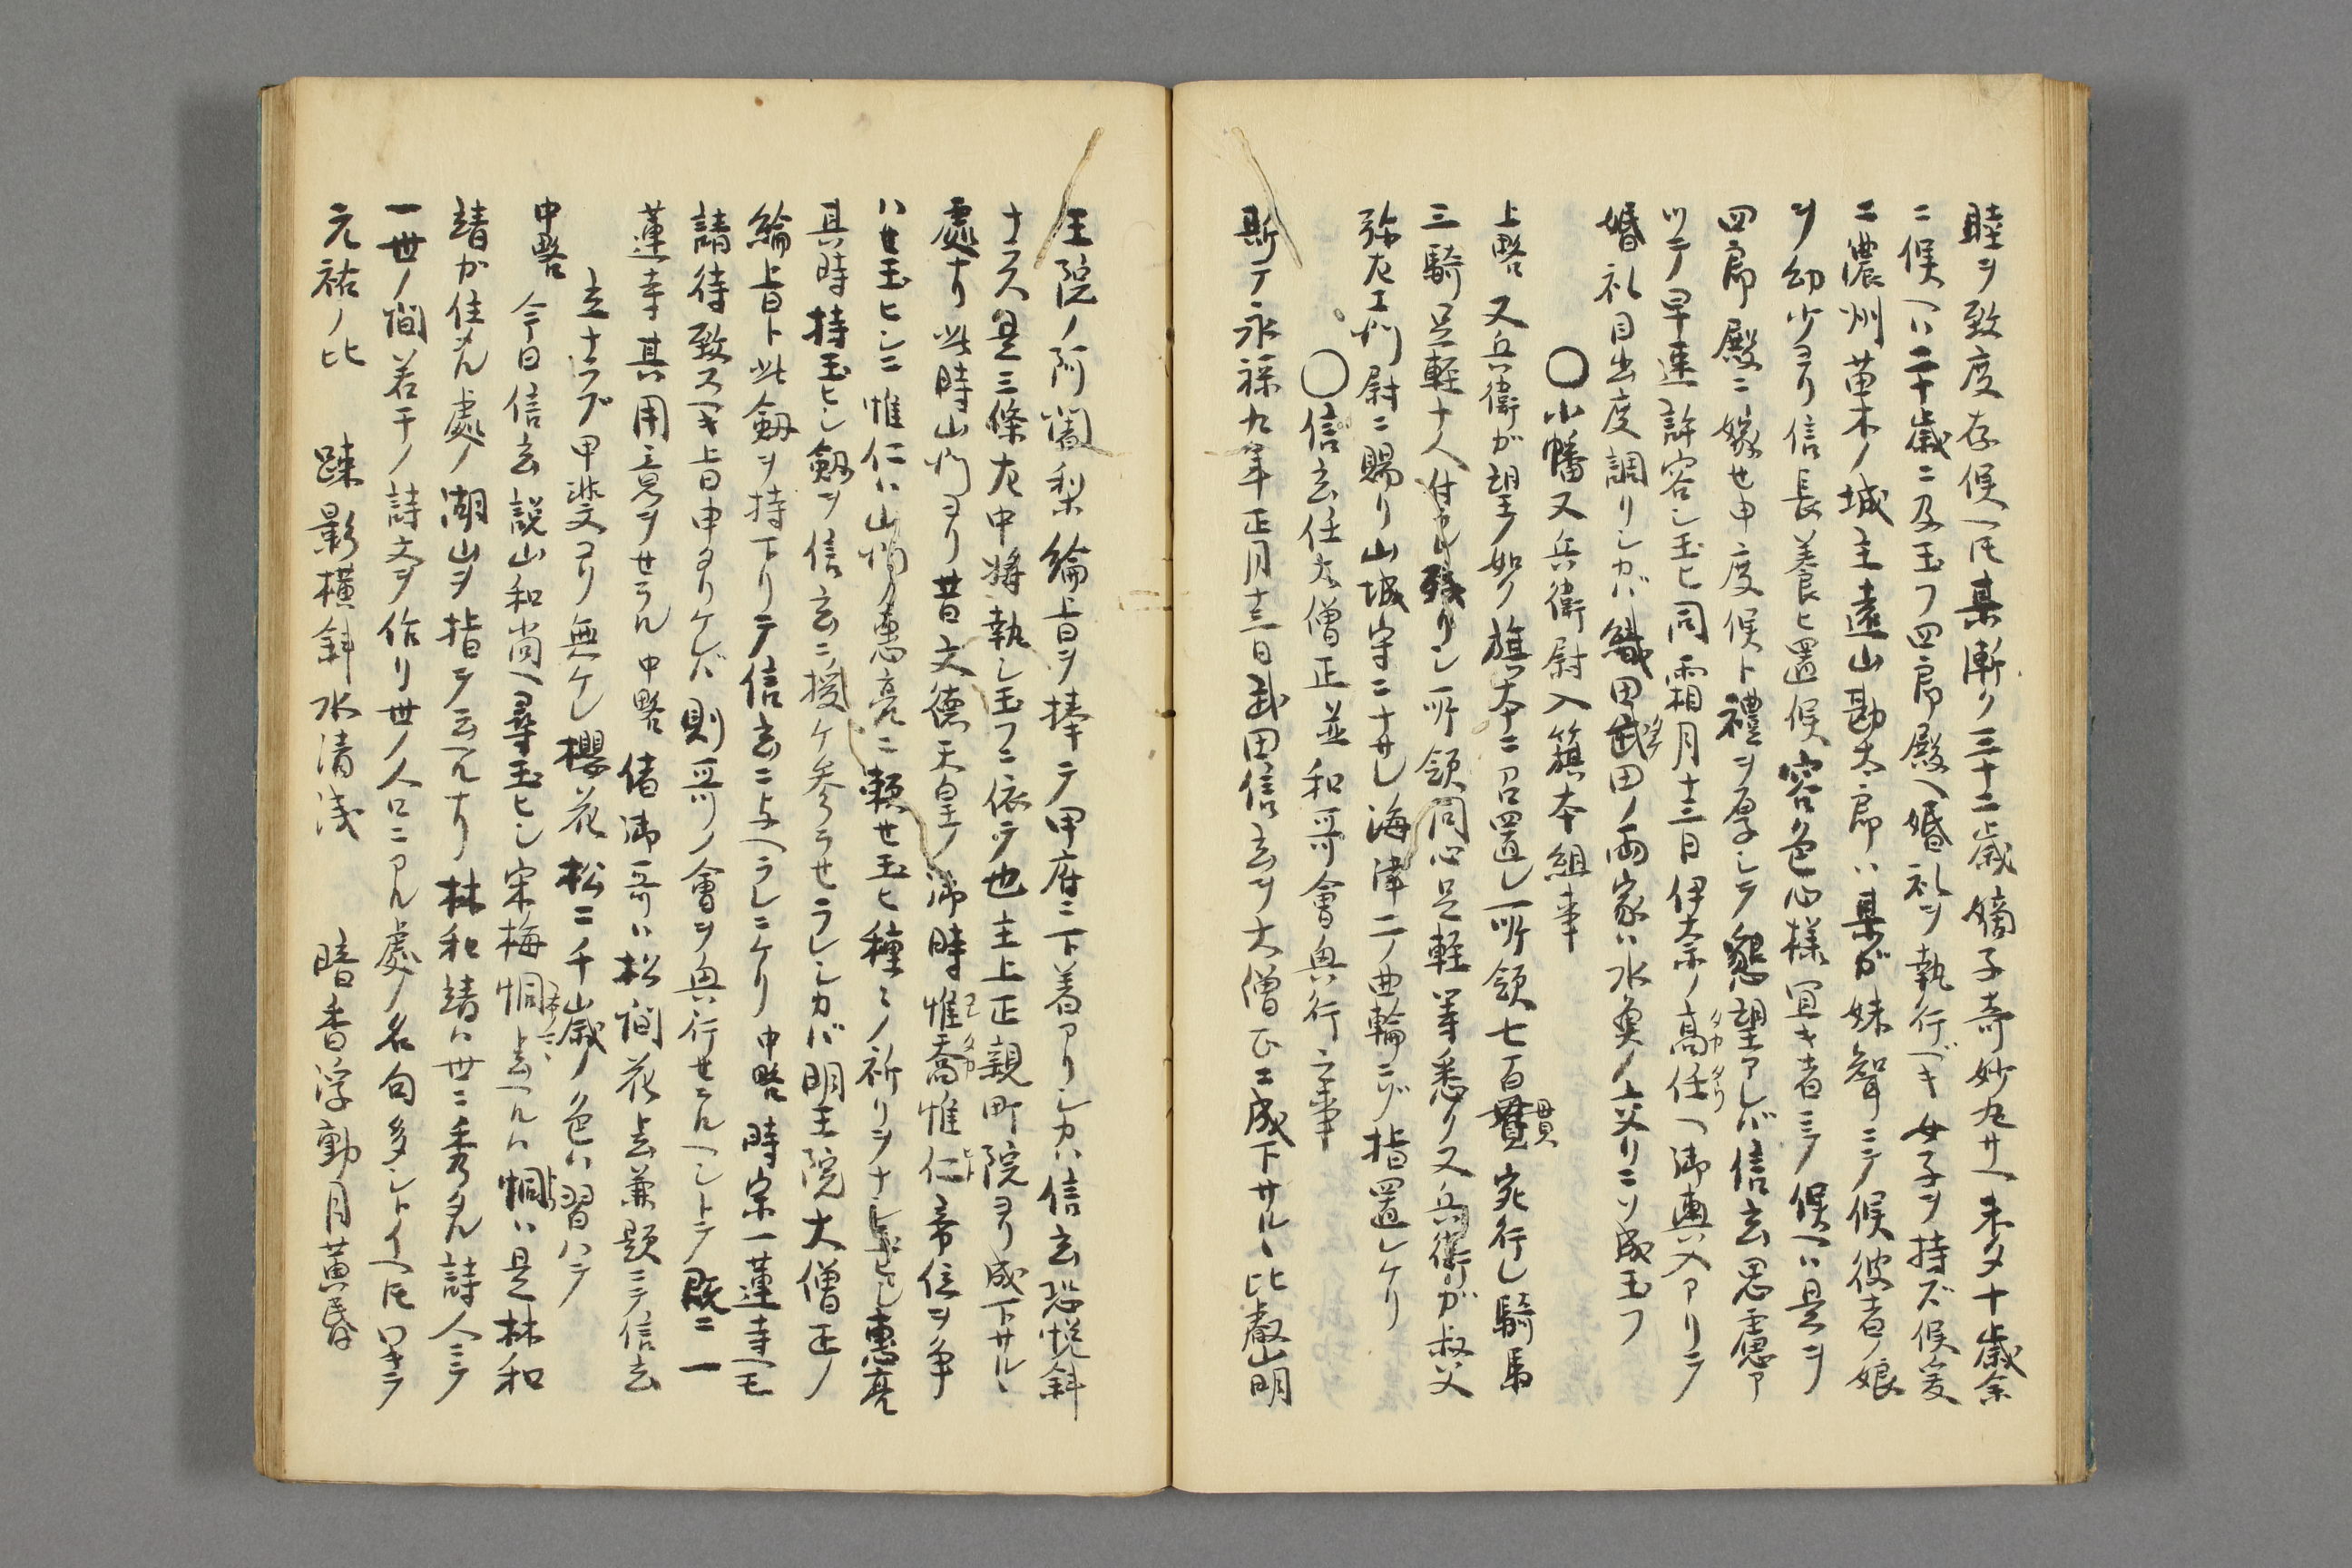 睦ヲ致度存候ヘ𪜈某漸ク三十二歳嫡子奇妙丸サヘ未タ十歳余
ニ候ヘハ二十歳ニ及玉フ四郎殿ヘ婚礼ヲ執行ベキ女子ヲ持ズ候爰
ニ濃州苗木ノ城主遠山勘太郎ハ某ガ妹聟ニテ候彼者ノ娘
ヲ幼少ヨリ信長養ヒ置候容色心様冝キ者ニテ候ヘハ是ヲ
四郎殿ニ嫁セ申度候ト禮ヲ厚シテ懇望アレバ信玄思慮ア
ツテ早速許容シ玉ヒ同霜月十三日伊奈ノ高任ヘ御輿入アリテ
婚礼目出度調リシカバ織田武田ノ両家ハ水魚ノ交リニソ成玉フ
〇小幡又兵衛尉入籏本組事
上略 又兵衛ガ望ノ如ク旗本ニ召置レ所領七百貫宛行レ騎馬
三騎足軽十人付ラレ残リシ所領同心足軽等悉ク又兵衛ガ叔父
弥左エ門尉ニ賜リ山城守ニナサレ海津二ノ曲輪ニゾ指置レケリ
〇信玄任大僧正並和哥會興行之事
斯テ永禄九年正月十三日武田信玄ヲ大僧正ニ成下サルヽ比叡山明
王院ノ阿闍梨綸旨ヲ捧テ甲府ニ下着アリシカハ信玄恐悦斜
ナラス是三條左中将執シ玉フニ依テ也主上正親町院ヨリ成下サルヽ
處ナリ此時山門ヨリ昔文徳天皇ノ御時惟喬惟仁帝位ヲ争
ハせ玉ヒシニ惟仁ハ山門ノ恵亮ニ頼せ玉ヒ種々ノ祈リヲナシ玉ヒシ恵亮
其時持玉ヒシ劔ヲ信玄ニ授ケ参ラせラレシカバ明王院大僧正ノ
綸旨ト此劔ヲ持下リテ信玄ニ与ヘラレニケリ 中略 時宗一蓮寺ヘモ
請待致スヘキ旨申タリケレバ則哥ノ會ヲ興行せラルヘシトテ既ニ一
蓮寺其用意ヲせラル 中略 偖御哥ハ松間花ト云兼題ニテ信玄
立ナラブ甲斐コソ無ケレ櫻花松ニ千歳ノ色ハ習ハテ
中略 今日信玄説山和尚ヘ尋玉ヒシ宋梅恫ト云ヘルハ恫ハ是林和
靖か住メル處ノ湖山ヲ指テ云ヘルナリ林和靖ハ世ニ秀タル詩人ニテ
一世ノ間若干ノ詩文ヲ作リ世ノ人口ニアル處ノ名句多シトイヘ𪜈ワキテ
元祐ノ比 疎影横斜水清浅 暗香浮動月黄昏